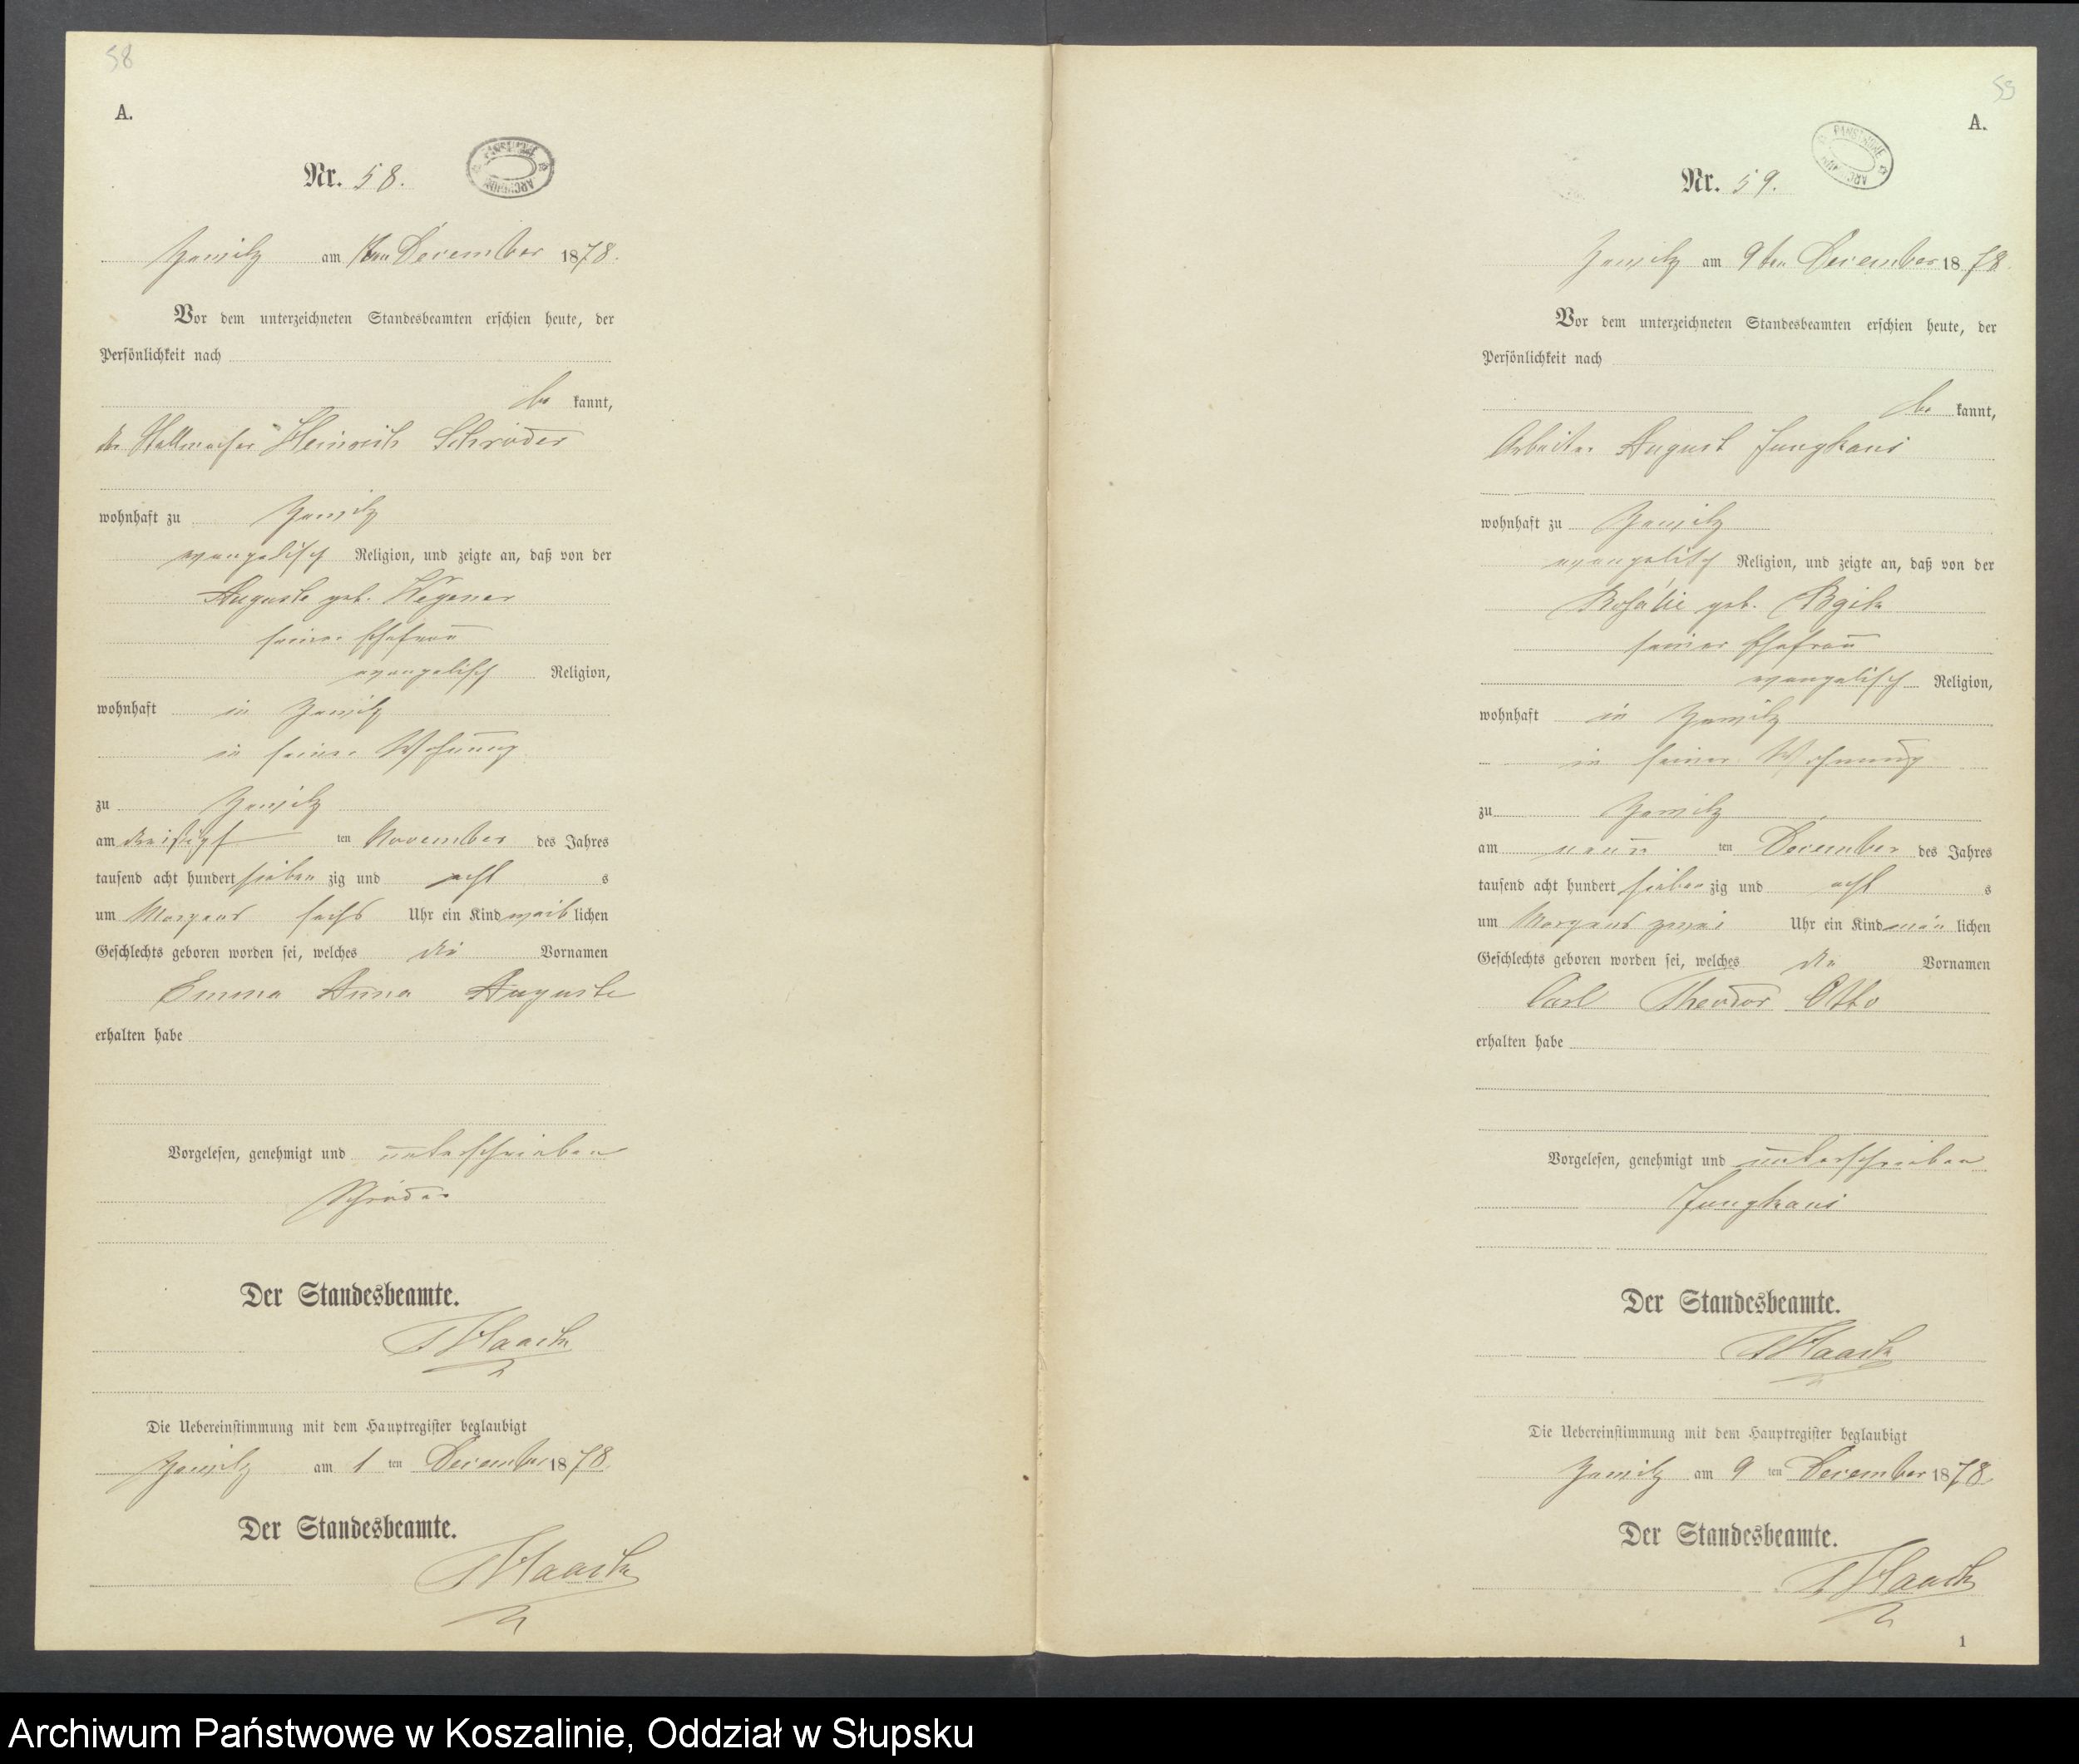 58
A.
Nr. 58.
PAŃSTWOWE ARCHIWUM
am 1ten December 1878.
Vor dem unterzeichneten Standesbeamten erschien heute, der
Persönlichkeit nach
be kannt,
der Stellmacher Heinrich Schröder
wohnhaft zu
evangelisch Religion, und zeigte an, daß von der
Auguste geb. Wegener
seiner Ehefrau
evangelisch Religion,
wohnhaft in
in seiner Wohnung
zu
am dreißigst ten November des Jahres
tausend acht hundert sieben zig und acht s
um Morgens sechs Uhr ein Kind weib lichen
Geschlechts geboren worden sei, welches die Vornamen
Emma Anna Auguste
erhalten habe
Vorgelesen, genehmigt und unterschrieben
Schröder
Der Standesbeamte.
Haack
Die Uebereinstimmung mit dem Hauptregister beglaubigt
am 1 ten December 1878.
Der Standesbeamte.
Haack
59
A.
Nr. 59.
PAŃSTWOWE ARCHIWUM
am 9ten December 1878.
Vor dem unterzeichneten Standesbeamten erschien heute, der
Persönlichkeit nach
be kannt,
Arbeiter August Junghans
wohnhaft zu
evangelisch Religion, und zeigte an, daß von der
Rosalie geb.
seiner Ehefrau
evangelisch Religion,
wohnhaft in
in seiner Wohnung
zu
am neun ten December des Jahres
tausend acht hundert sieben zig und acht s
um Morgens zwei Uhr ein Kind män lichen
Geschlechts geboren worden sei, welches die Vornamen
Carl Theodor Otto
erhalten habe
Vorgelesen, genehmigt und unterschrieben
Junghans
Der Standesbeamte.
Haack
Die Uebereinstimmung mit dem Hauptregister beglaubigt
am 9 ten December 1878
Der Standesbeamte.
Haack
1
Archiwum Państwowe w Koszalinie, Oddział w Słupsku